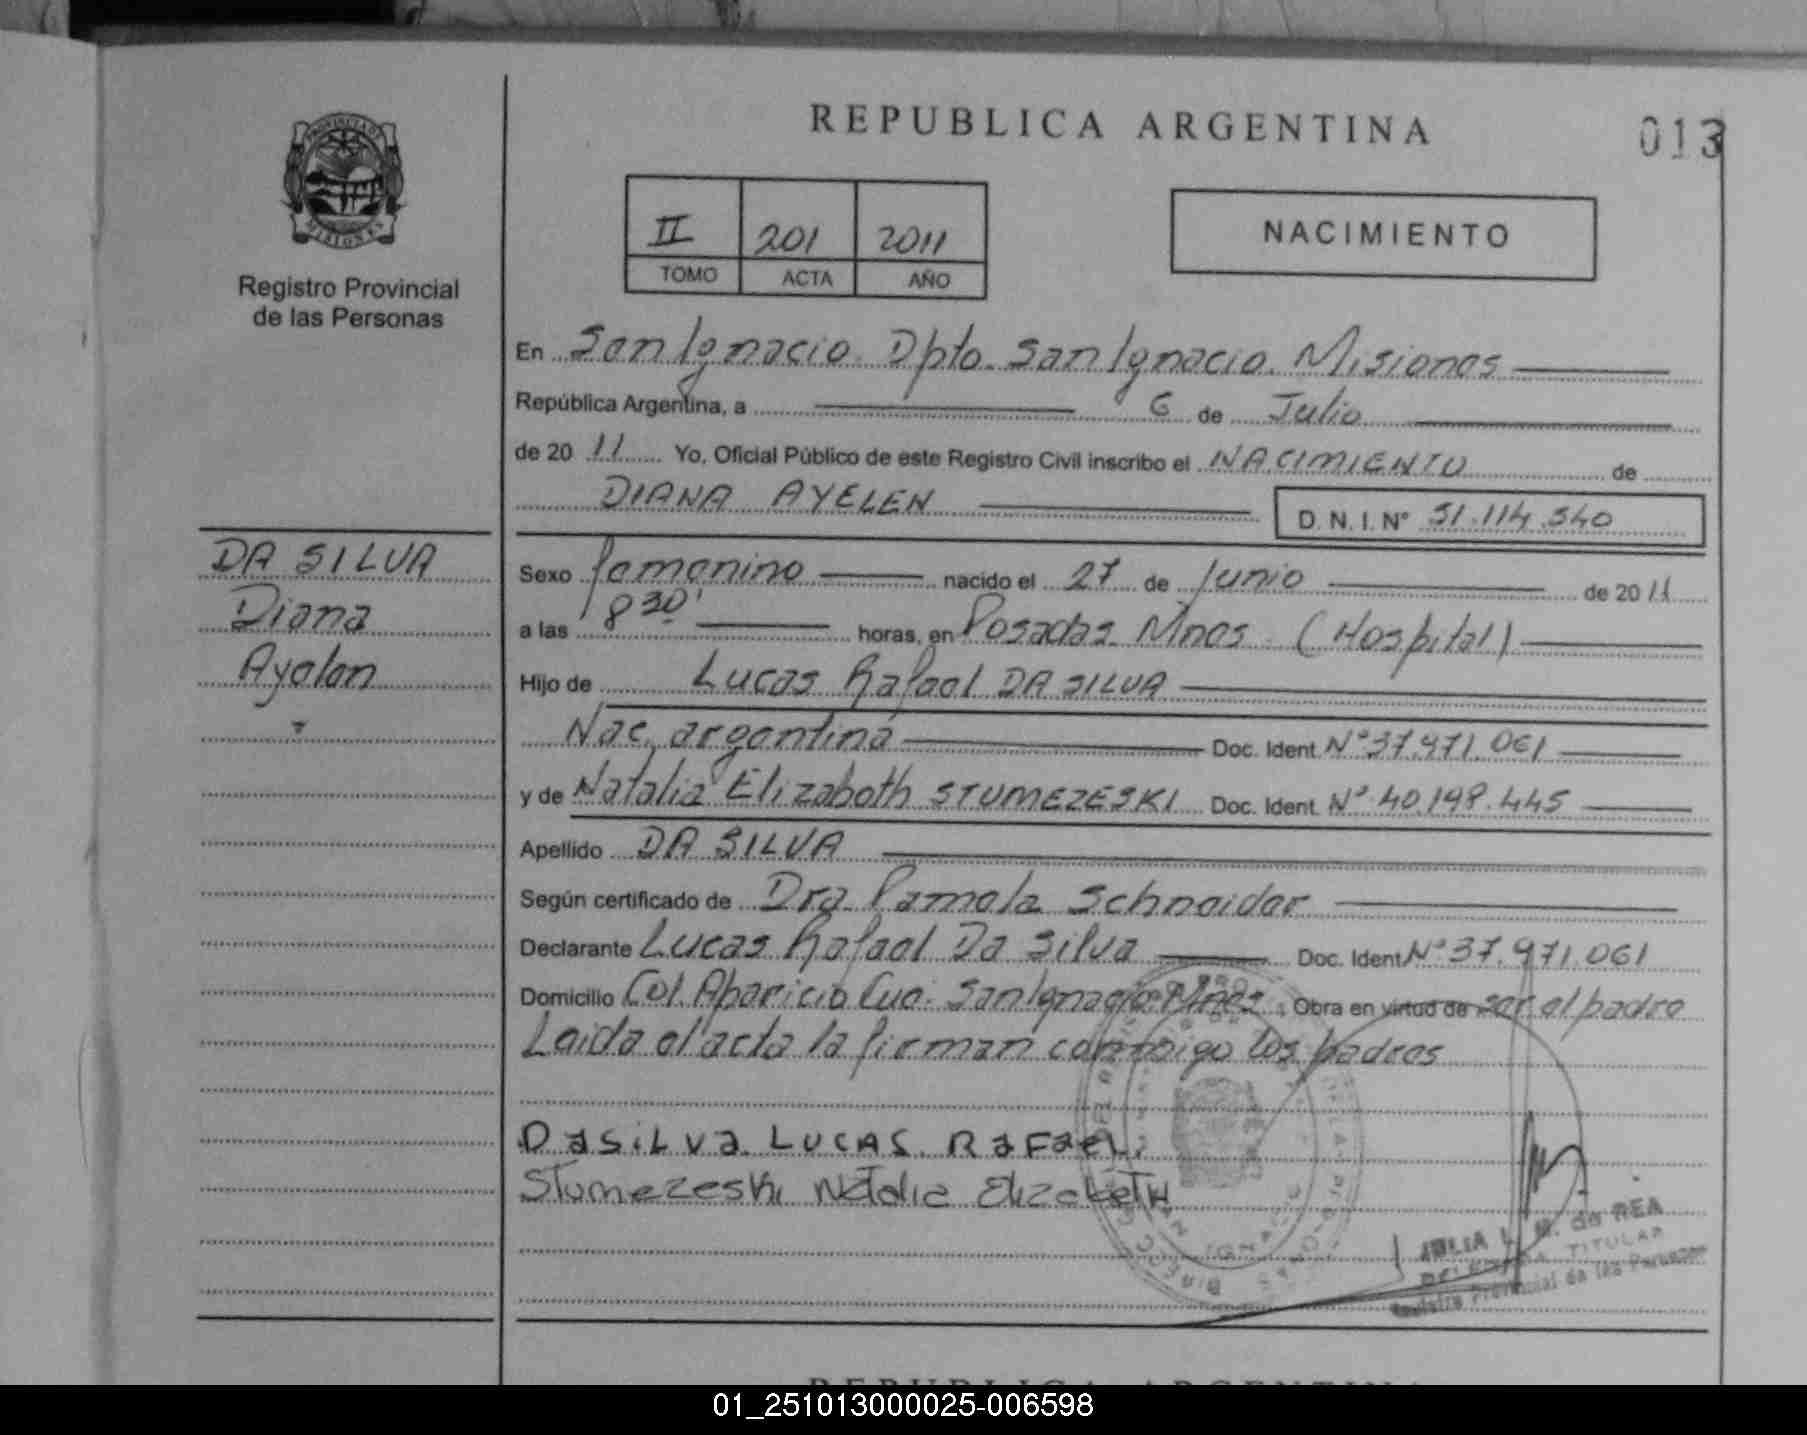 REPUBLICA ARGENTINA
013
PROVINCIA DE
MISIONES
Registro Provincial
de las Personas
II 201 2011
TOMO ACTA AÑO
NACIMIENTO
En San Ignacio Dpto. San Ignacio. Misiones
República Argentina, a 6 de Julio
de 20 11 Yo, Oficial Público de este Registro Civil inscribo el NACIMIENTO de
DIANA AYELEN
D. N. I. Nº 51.114.540
DA SILVA
Diana
Ayelen
Sexo femenino nacido el 27 de Junio de 20 11
a las 8 30' horas, en Posadas Mnes. (Hospital)
Hijo de Lucas Rafael DA SILVA
Nac. argentina Doc. Ident. Nº 37.971.061
y de Natalia Elizabeth STUMEZESKI Doc. Ident. Nº 40.198.445
Apellido DA SILVA
Según certificado de Dra. Pamela Schneider
Declarante Lucas Rafael Da Silva Doc. Ident. Nº 37.971.061
Domicilio Col. Aparicio Cué. San Ignacio Mnes. Obra en virtud de ser el padre
Leida el acta la firman conmigo los padres
DaSiLVa LUCAS RaFaEL
Stumezeski Natalia ElizabeTH
JULIA L. M. de REA
DELEGADA TITULAR
Registro Provincial de las Personas
REPUBLICA ARGENTINA
01_251013000025-006598